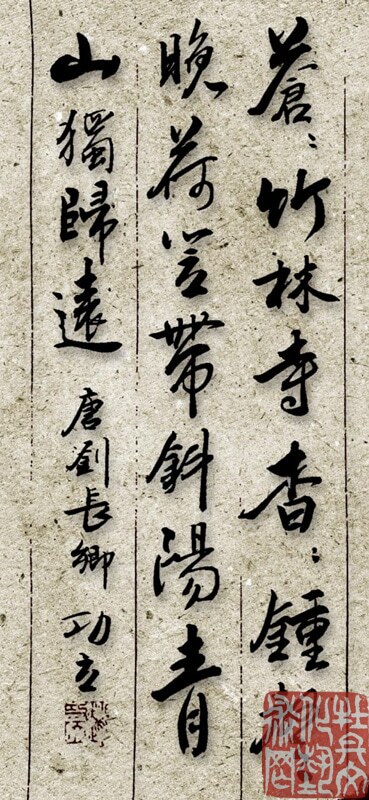 蒼〻竹林寺杳〻鍾聲
晚荷笠帶斜陽青
山獨歸遠 唐劉長卿 功立